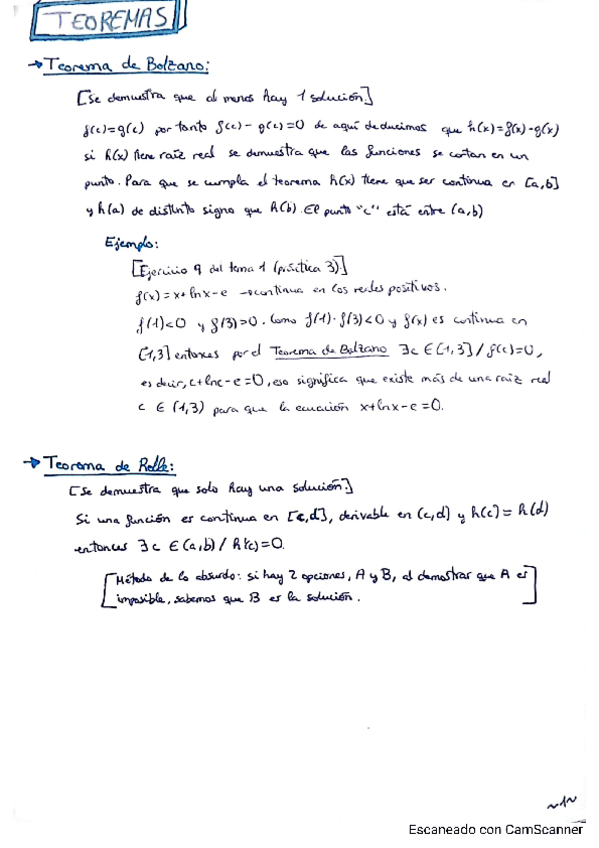 TEOREMAS
→ Teorema de Bolzano:
[Se demuestra que al menos hay 1 solución]
f(c)=g(c) por tanto f(c)-g(c)=0 de aquí deducimos que h(x)=f(x)-g(x)
si h(x) tiene raíz real se demuestra que las funciones se cortan en un
punto. Para que se cumpla el teorema h(x) tiene que ser continua en [a,b]
y h(a) de distinto signo que h(b). El punto "c" está entre (a,b)
Ejemplo:
[Ejercicio 9 del tema 1 (práctica 3)]
f(x)=x+lnx-e → continua en los reales positivos.
f(1)<0 y f(3)>0. Como f(1)·f(3)<0 y f(x) es continua en
[1,3] entonces por el Teorema de Bolzano ∃c∈[1,3]/f(c)=0,
es decir, c+lnc-e=0, eso significa que existe más de una raíz real
c ∈ (1,3) para que la ecuación x+lnx-e=0.
→ Teorema de Rolle:
[Se demuestra que solo hay una solución]
Si una función es continua en [c,d], derivable en (c,d) y h(c)=h(d)
entonces ∃c∈(a,b)/h'(c)=0.
[Método de lo absurdo: si hay 2 opciones, A y B, al demostrar que A es
imposible, sabemos que B es la solución.]
~1~
Escaneado con CamScanner